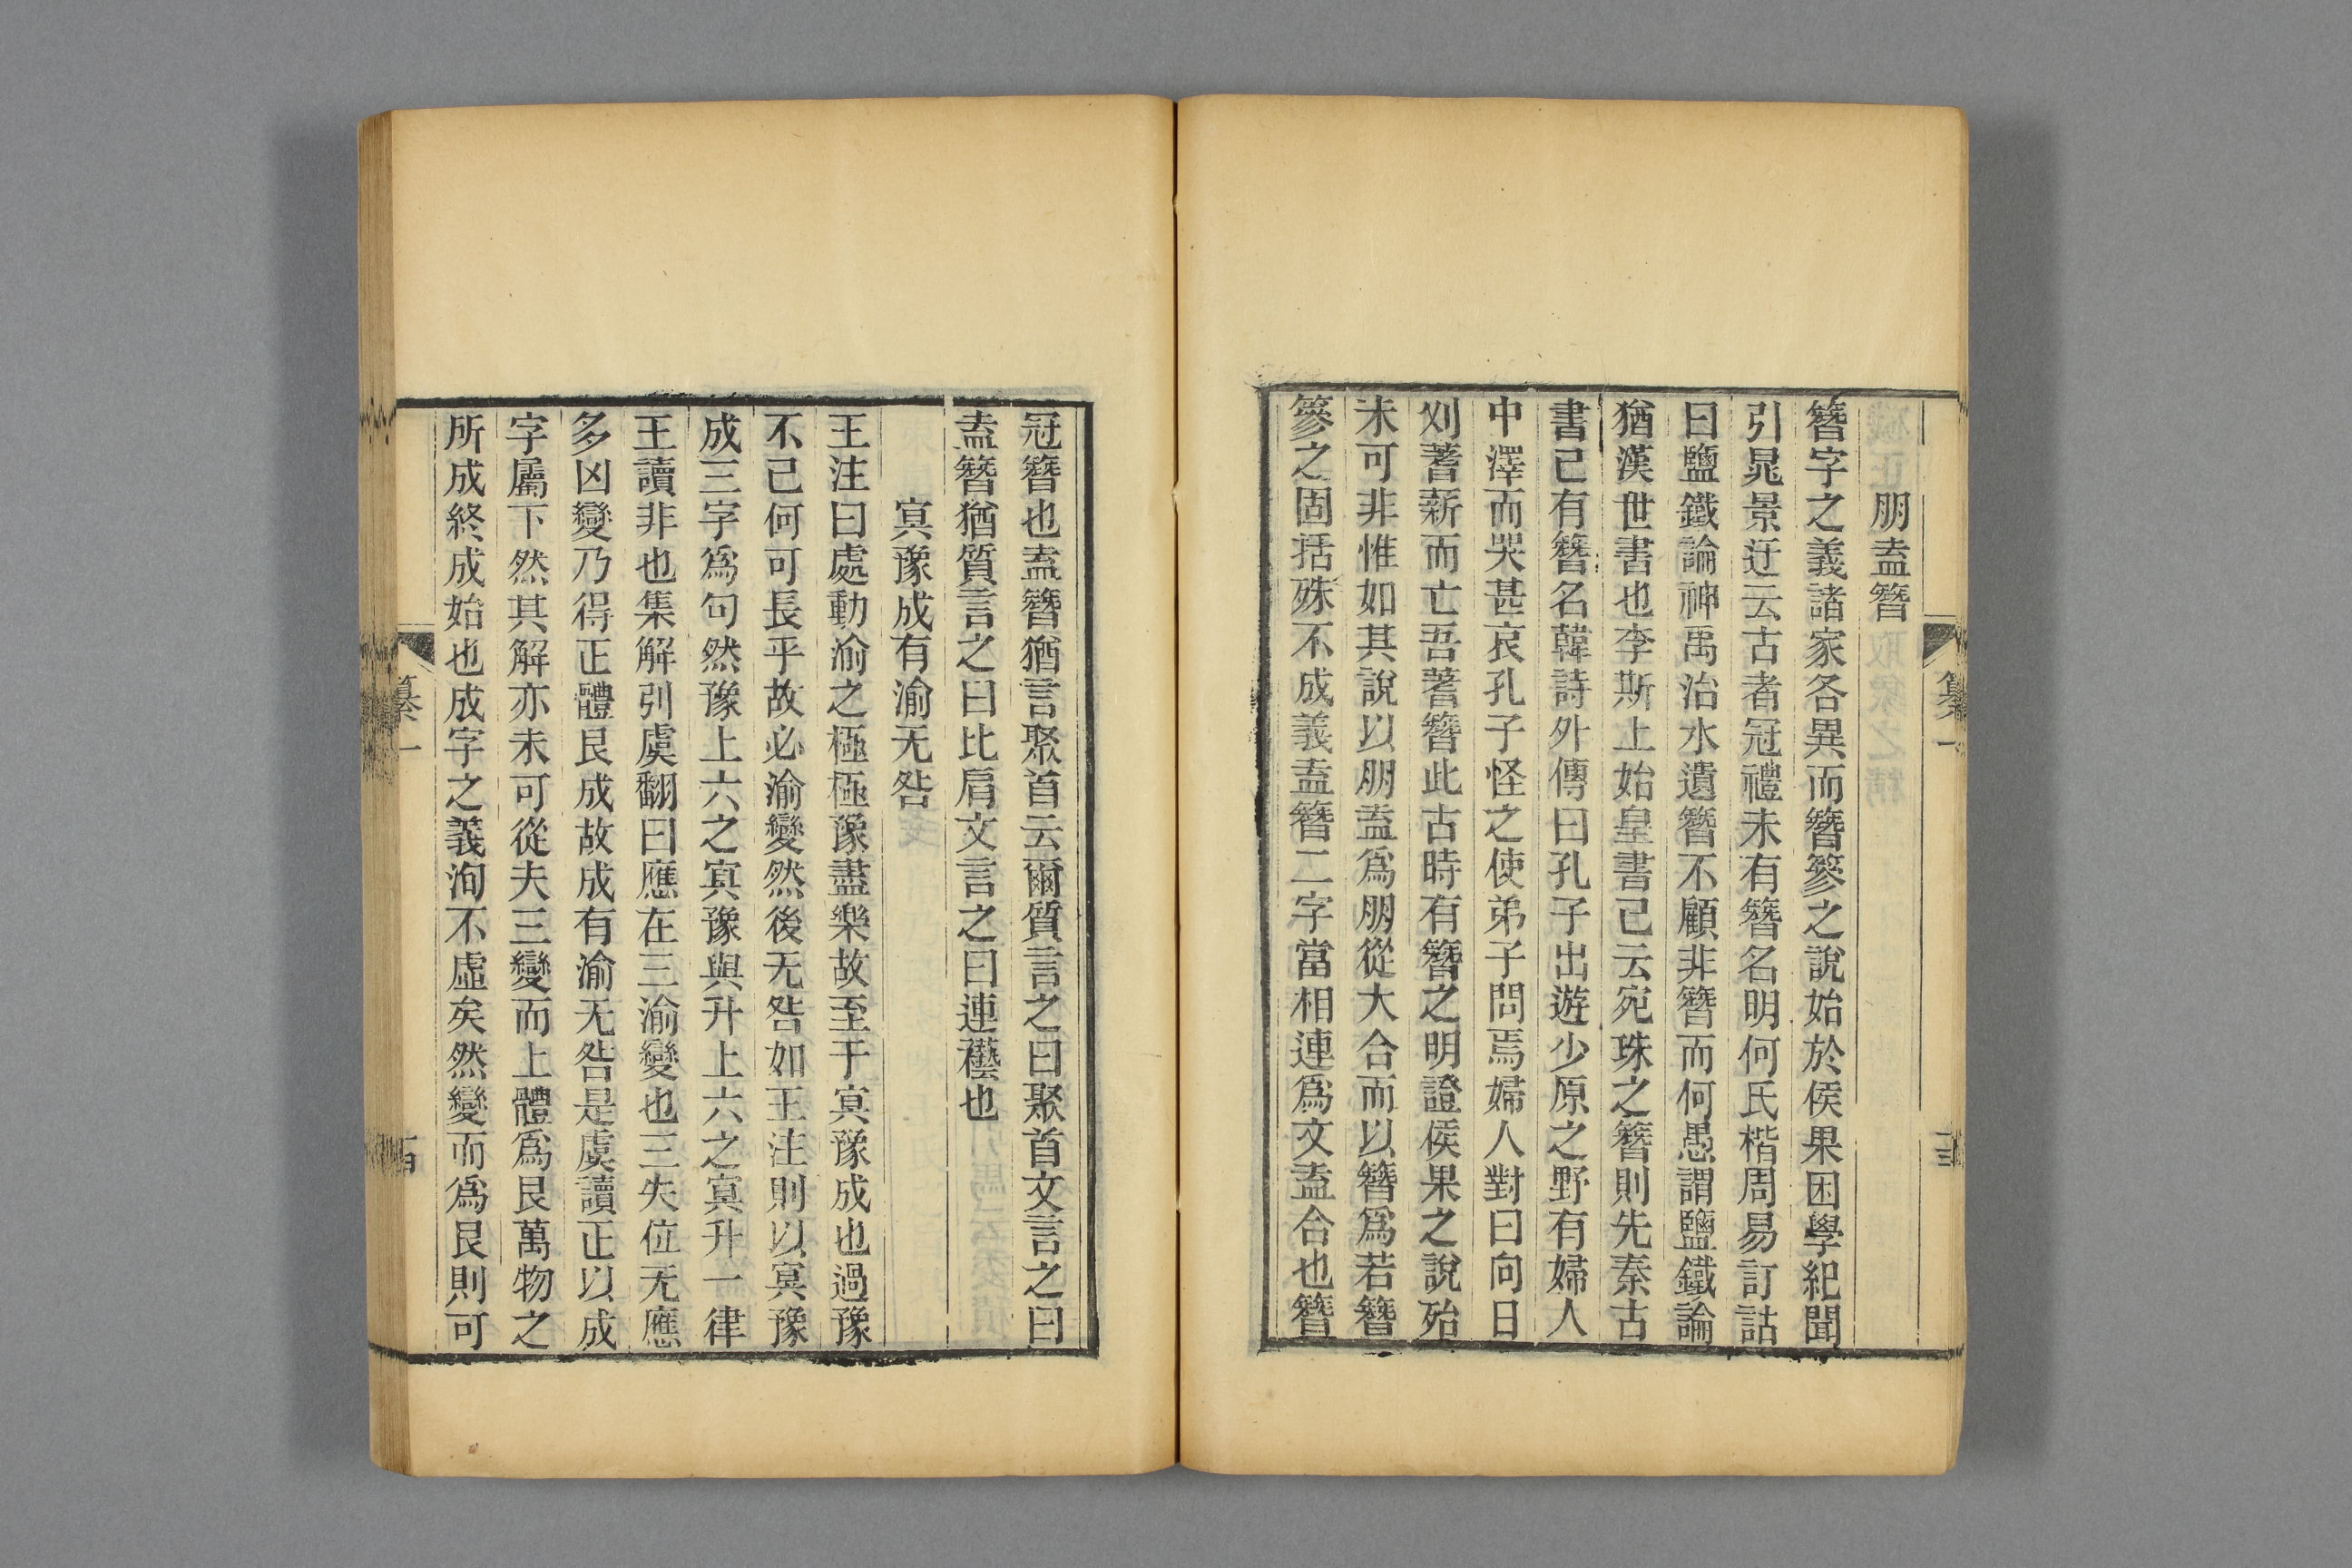 朋盍簪
簪字之義諸家各異而簪篸之說始於侯果困學紀聞
引晁景迂云古者冠禮未有簪名明何氏楷周易訂詁
曰鹽鐵論神禹治水遺簪不顧非簪而何愚謂鹽鐵論
猶漢世書也李斯上始皇書已云宛珠之簪則先秦古
書已有簪名韓詩外傳曰孔子出遊少原之野有婦人
中澤而哭甚哀孔子怪之使弟子問焉婦人對曰向日
刈蓍薪而亡吾蓍簪此古時有簪之明證侯果之說殆
未可非惟如其說以朋盍爲朋從大合而以簪爲若簪
篸之固括殊不成義盍簪二字當相連爲文盍合也簪
纂一
冠簪也盍簪猶言聚首云爾質言之曰聚首文言之曰
盍簪猶質言之曰比肩文言之曰連䙡也
冥豫成有渝无咎
王注曰處動渝之極極豫盡樂故至于冥豫成也過豫
不已何可長乎故必渝變然後无咎如王注則以冥豫
成三字爲句然豫上六之冥豫與升上六之冥升一律
王讀非也集解引虞翻曰應在三渝變也三失位无應
多凶變乃得正體艮成故成有渝无咎是虞讀正以成
字屬下然其解亦未可從夫三變而上體爲艮萬物之
所成終成始也成字之義洵不虛矣然變而爲艮則可
纂一